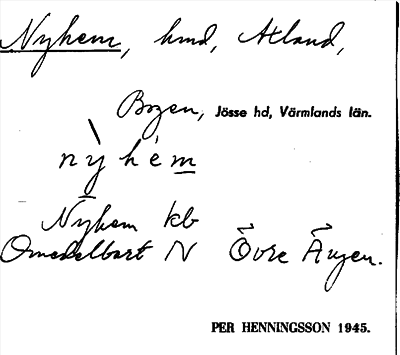 Nyhem, hmd, Alland,
Bogen, Jösse hd, Värmlands län.
nỳhém
Nyhem kb
Omedelbart N Övre Ängen.
PER HENNINGSSON 1945.